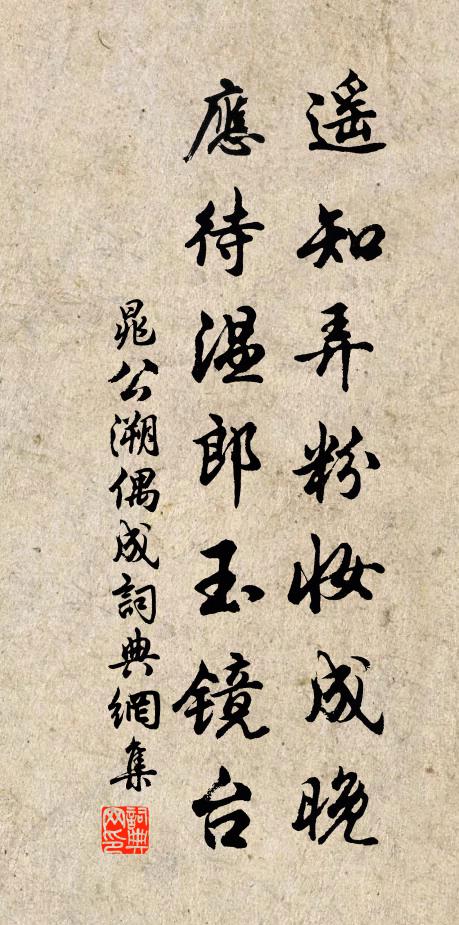 遥知弄粉妆成晚
應待温郎玉镜台
晁公溯偶成詞典網集
詞典网印